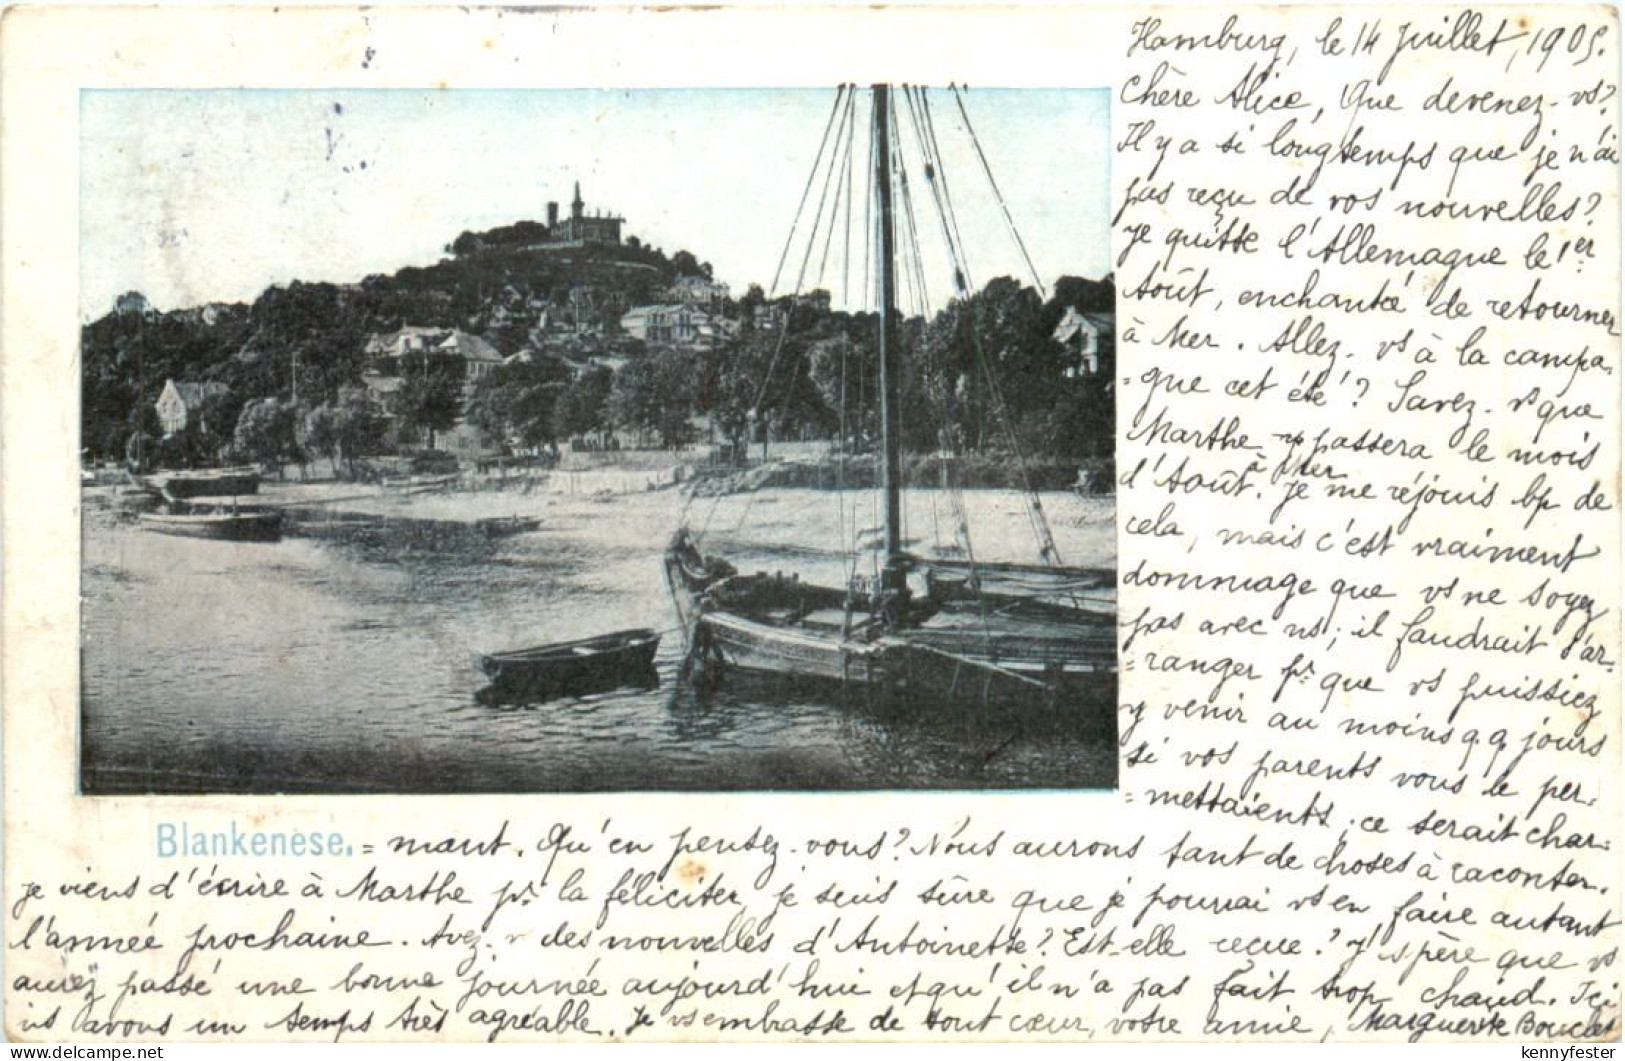 Hamburg, le 14 Juillet, 1905.
Chère Alice, Que devenez-vs?
Il y a si longtemps que je n'ai
pas reçu de vos nouvelles?
Je quitte l'Allemagne le 1er
Août, enchantée de retourner
à Mer. Allez-vs à la campa-
=gne cet été? Savez-vs que
Marthe y passera le mois
à Mer
d'Août. Je me réjouis bp de
cela, mais c'est vraiment
dommage que vs ne soyez
pas avec ns; il faudrait s'ar-
=ranger pr que vs puissiez
y venir au moins q.q jours
si vos parents vous le per-
=mettaients; ce serait char-
Blankenese. =mant. Qu'en pensez-vous? Nous aurons tant de choses à raconter.
je viens d'écrire à Marthe pr la féliciter, je suis sûre que je pourrai vs en faire autant
l'année prochaine. Avez-v des nouvelles d'Antoinette? Est-elle reçue? J'espère que vs
aurez passé une bonne journée aujourd'hui et qu'il n'a pas fait trop chaud. Ici
ns avons un temps très agréable. Je vs embrasse de tout cœur, votre amie, Marguerite
kennyfester